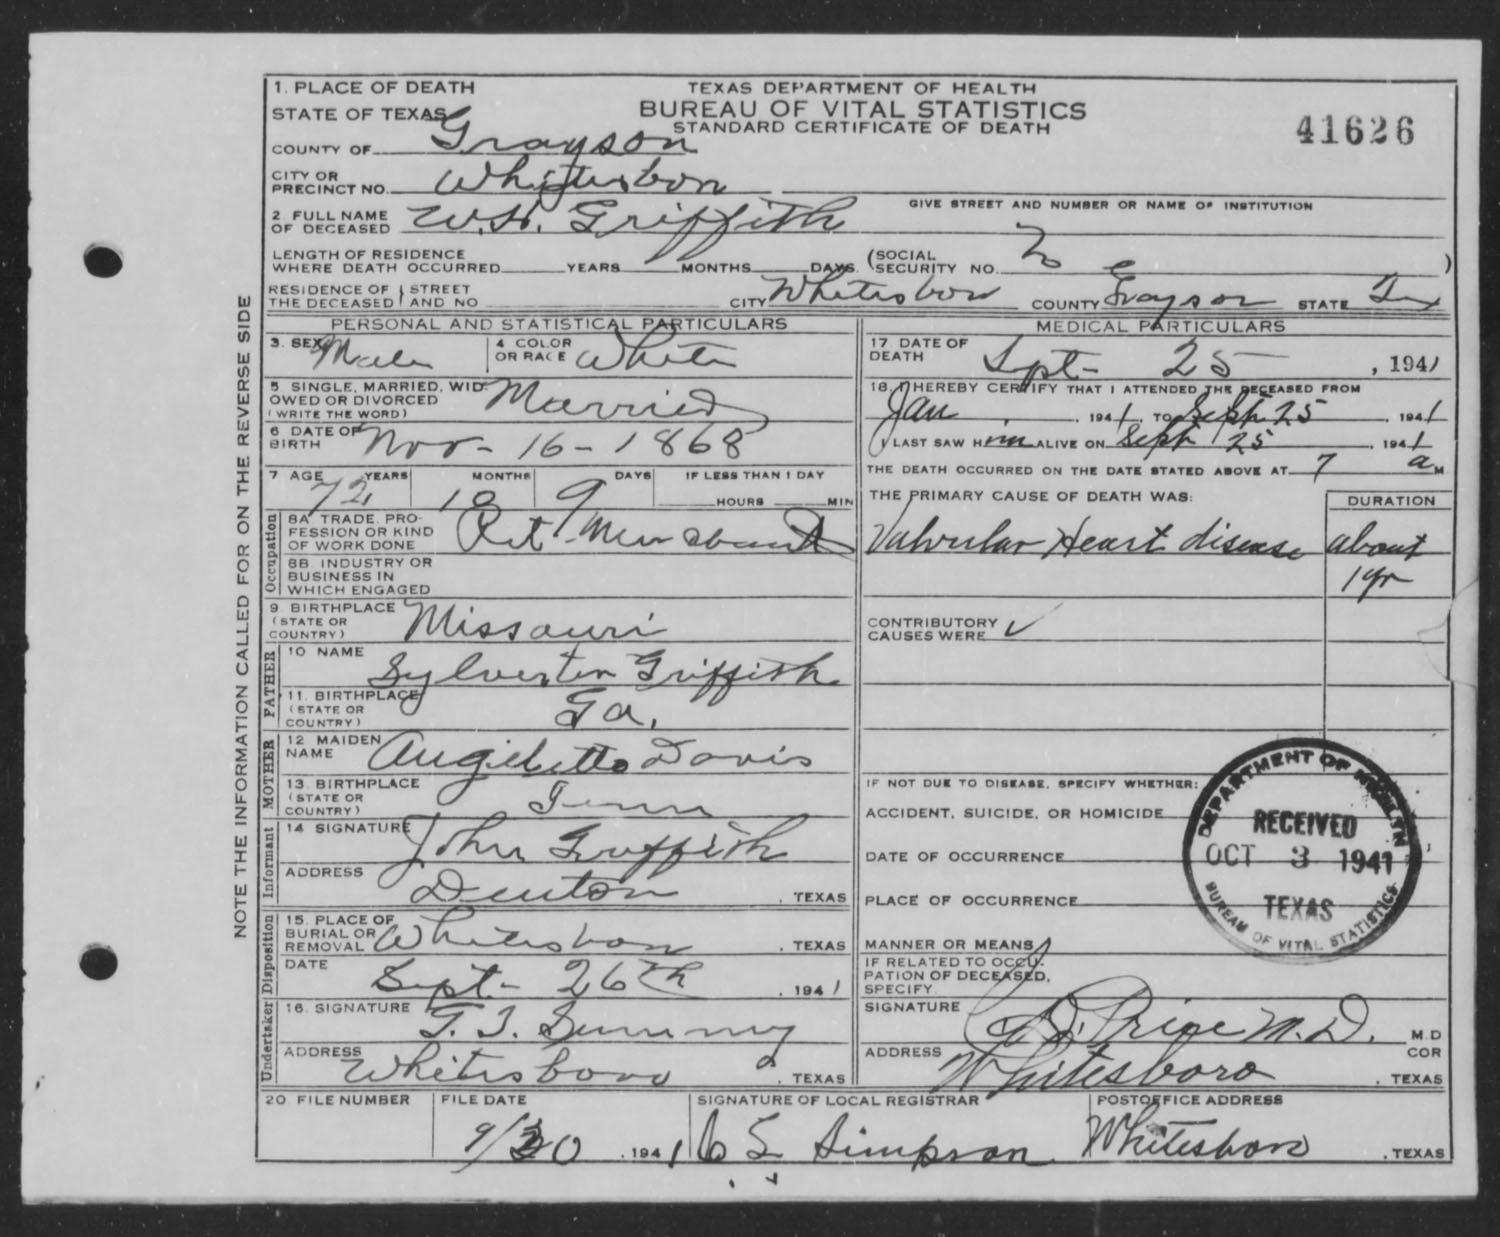 1. PLACE OF DEATH
TEXAS DEPARTMENT OF HEALTH
STATE OF TEXAS
BUREAU OF VITAL STATISTICS
STANDARD CERTIFICATE OF DEATH
41626
COUNTY OF Grayson
CITY OR PRECINCT NO. Whitesboro
GIVE STREET AND NUMBER OR NAME OF INSTITUTION
2. FULL NAME OF DECEASED W.H. Griffith
LENGTH OF RESIDENCE WHERE DEATH OCCURRED YEARS MONTHS DAYS (SOCIAL SECURITY NO. No )
RESIDENCE OF THE DECEASED STREET AND NO CITY Whitesboro COUNTY Grayson STATE Tex
PERSONAL AND STATISTICAL PARTICULARS
3. SEX Male 4 COLOR OR RACE White
5 SINGLE, MARRIED, WIDOWED OR DIVORCED (WRITE THE WORD) Married
6 DATE OF BIRTH Nov - 16 - 1868
7 AGE 72 YEARS 10 MONTHS 9 DAYS IF LESS THAN 1 DAY HOURS MIN
Occupation
8A TRADE, PROFESSION OR KIND OF WORK DONE Ret Merchant
8B. INDUSTRY OR BUSINESS IN WHICH ENGAGED
9. BIRTHPLACE (STATE OR COUNTRY) Missouri
FATHER
10 NAME Sylvester Griffith
11. BIRTHPLACE (STATE OR COUNTRY) Ga.
MOTHER
12 MAIDEN NAME Davis
13. BIRTHPLACE (STATE OR COUNTRY) Tenn
Informant
14 SIGNATURE John Griffith
ADDRESS Denton , TEXAS
Disposition
15. PLACE OF BURIAL OR REMOVAL Whitesboro , TEXAS
DATE Sept - 26th , 1941
Undertaker
16. SIGNATURE
ADDRESS Whitesboro , TEXAS
MEDICAL PARTICULARS
17. DATE OF DEATH Sept - 25 , 1941
18. I HEREBY CERTIFY THAT I ATTENDED THE DECEASED FROM
Jan 1941, TO Sept 25 1941
I LAST SAW HIM ALIVE ON Sept 25 1941
THE DEATH OCCURRED ON THE DATE STATED ABOVE AT 7 a M
THE PRIMARY CAUSE OF DEATH WAS: DURATION
Valvular Heart disease about
1 yr
CONTRIBUTORY CAUSES WERE ✓
IF NOT DUE TO DISEASE, SPECIFY WHETHER:
ACCIDENT, SUICIDE, OR HOMICIDE
DATE OF OCCURRENCE
PLACE OF OCCURRENCE
MANNER OR MEANS
IF RELATED TO OCCUPATION OF DECEASED, SPECIFY.
SIGNATURE Price M.D. M.D
COR
ADDRESS Whitesboro , TEXAS
DEPARTMENT OF HEALTH
RECEIVED
OCT 3 1941
TEXAS
BUREAU OF VITAL STATISTICS
20 FILE NUMBER FILE DATE SIGNATURE OF LOCAL REGISTRAR POSTOFFICE ADDRESS
9/30 , 1941 Simpson Whitesboro , TEXAS
NOTE THE INFORMATION CALLED FOR ON THE REVERSE SIDE